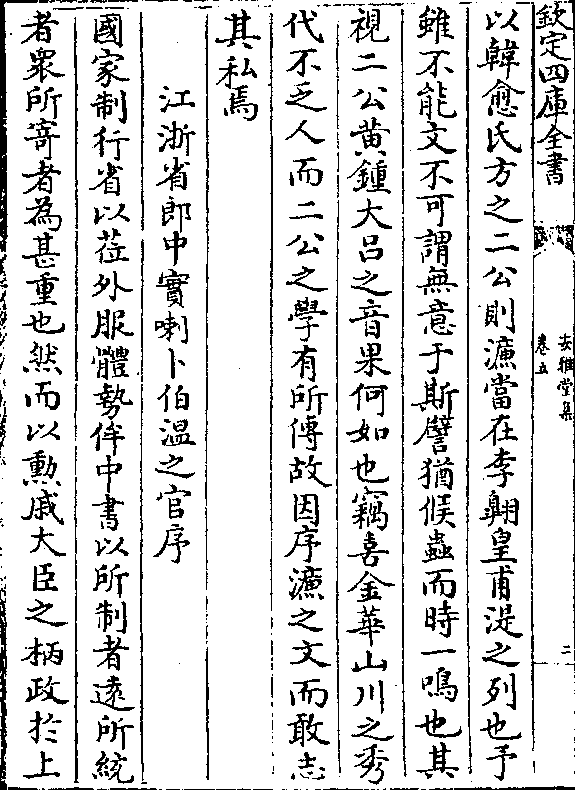 欽定四庫全書
安雅堂集
卷五
二
以韓愈氏方之二公則濂當在李翺皇甫湜之列也予
雖不能文不可謂無意于斯譬猶候蟲而時一鳴也其
視二公黄鍾大吕之音果何如也竊喜金華山川之秀
代不乏人而二公之學有所傳故因序濂之文而敢志
其私焉
江浙省郎中實喇卜伯温之官序
國家制行省以莅外服體勢侔中書以所制者逺所統
者衆所寄者為甚重也然而以勲戚大臣之柄政於上